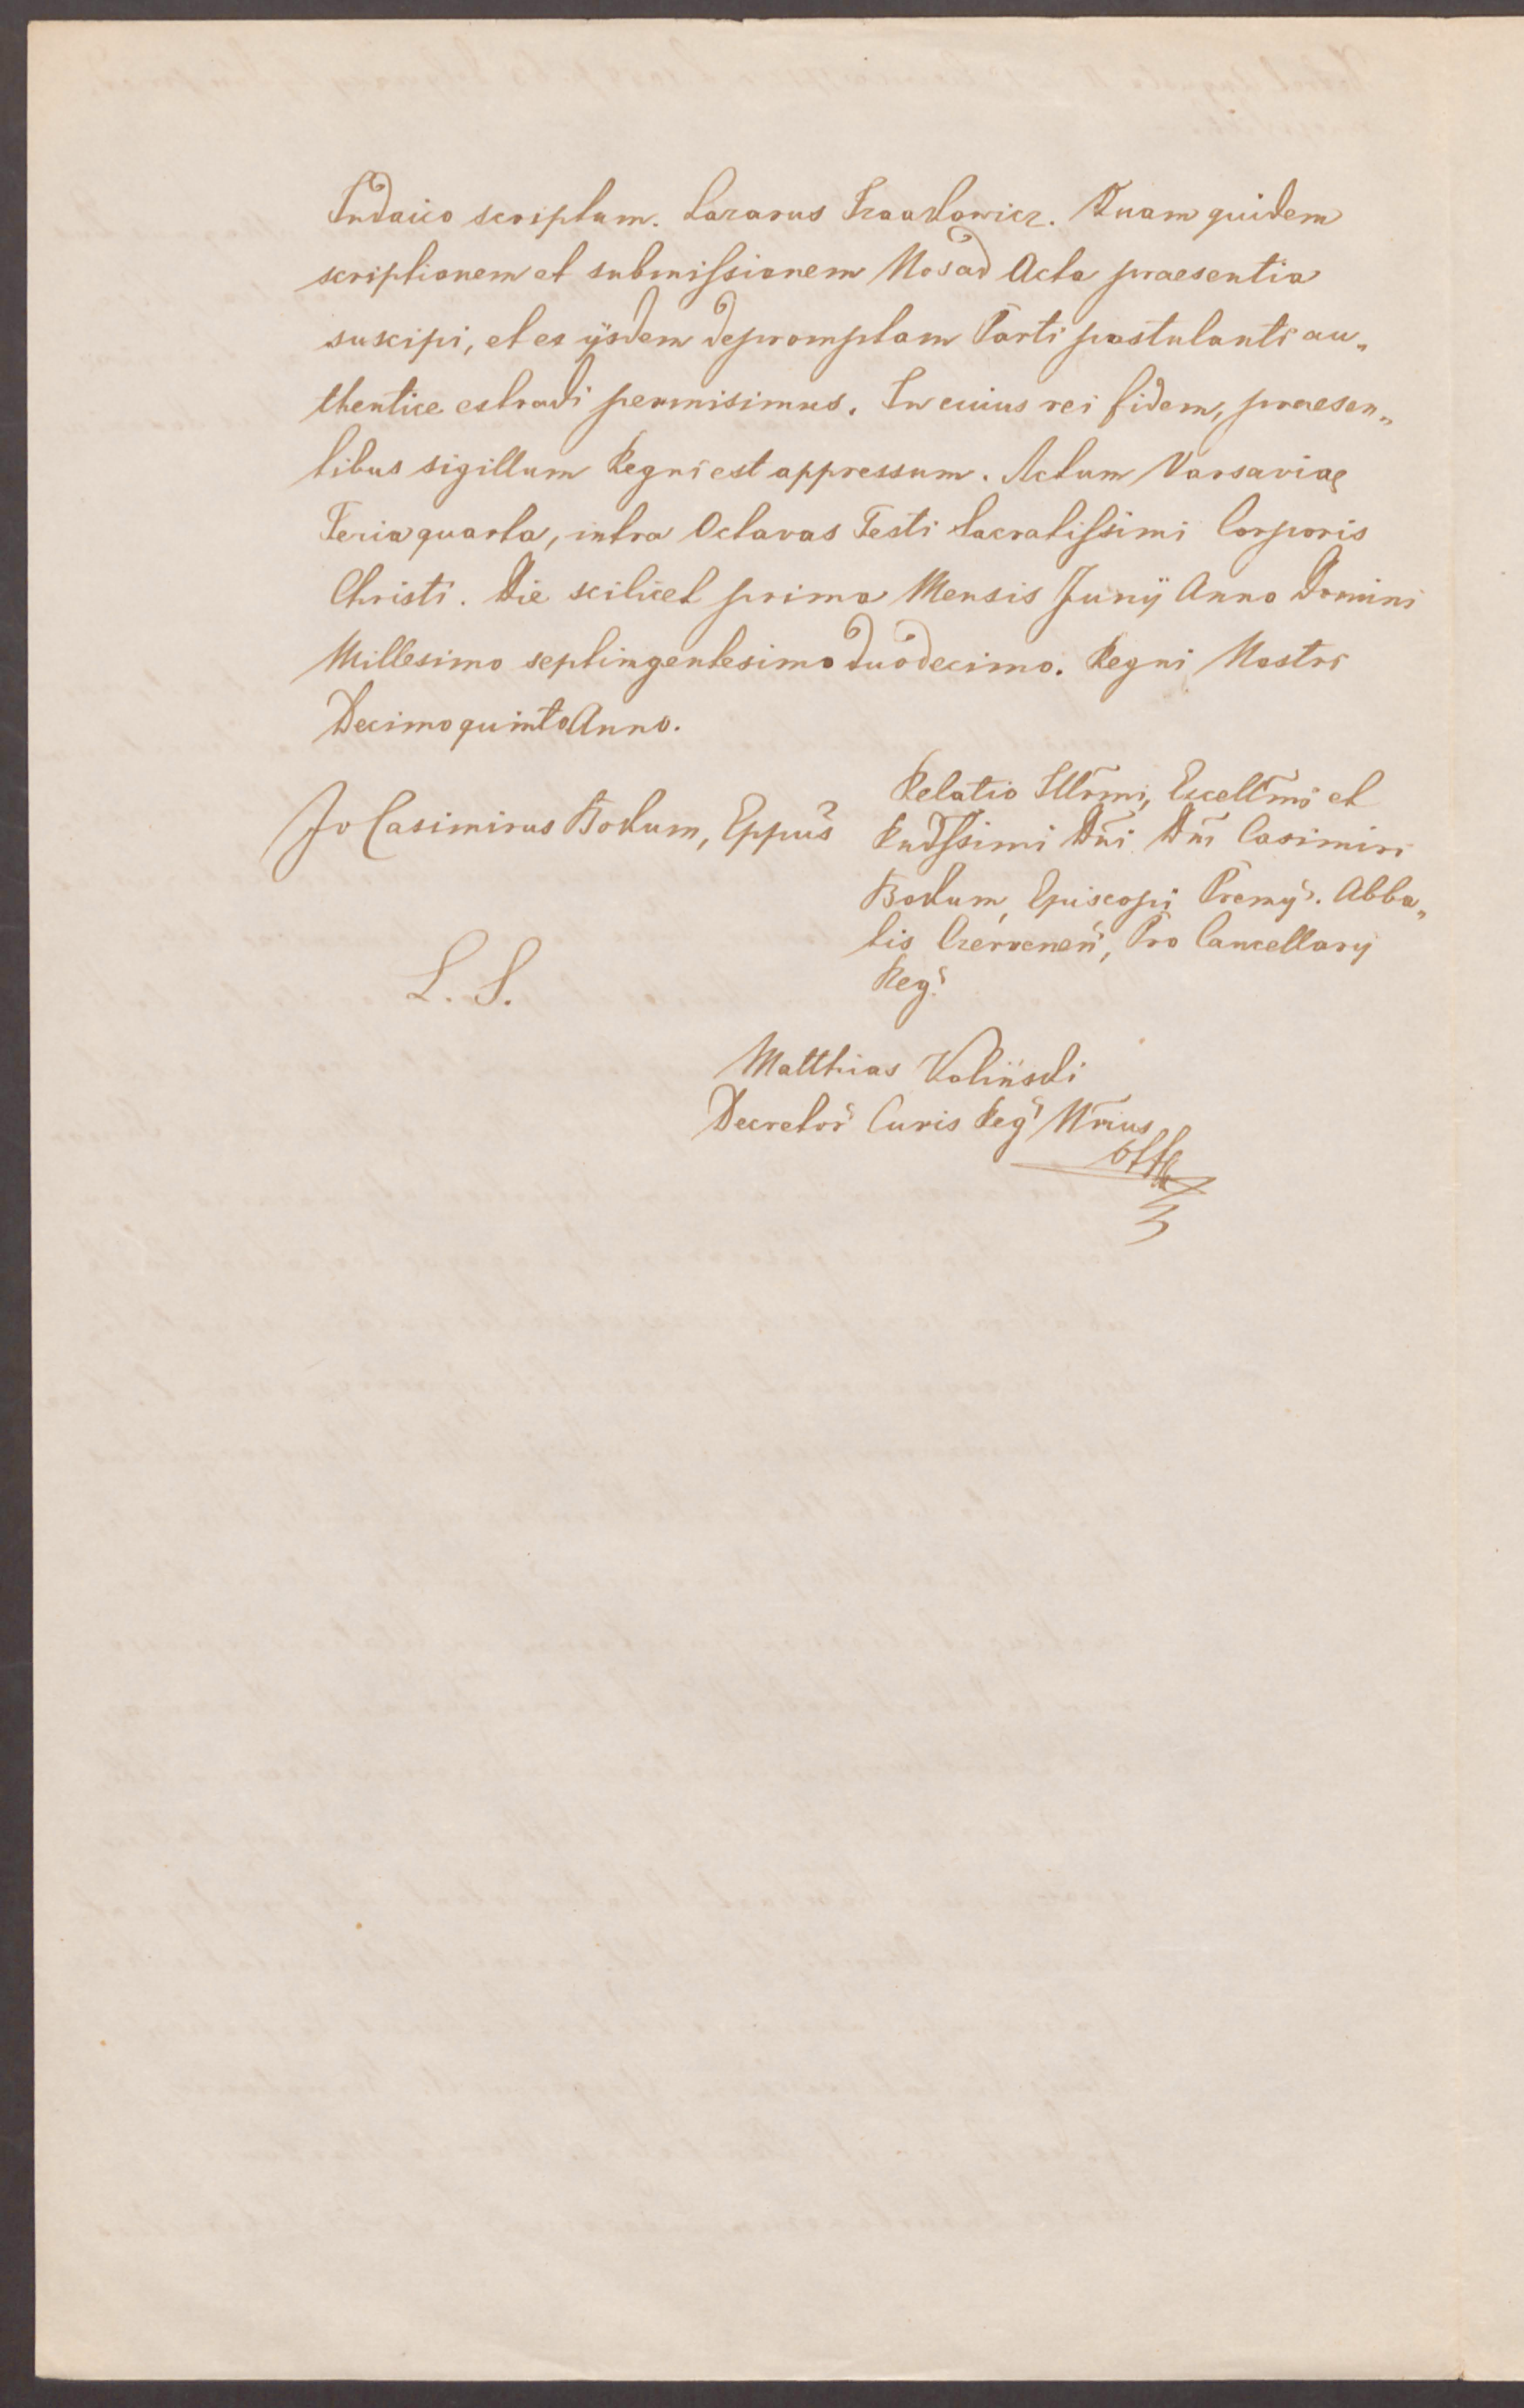 Judaico scriptum. Lazarus Izaaklowicz. Quam quidem
scriptionem et submiſsionem Nos ad Acta praesentia
suscipi, et ex ijsdem depromptam Parti postulanti au„
thentice extradi permisimus. In cuius rei fidem, praesen„
tibus sigillum Regni est appressum. Actum Varsaviae
Feria quarta, intra Octavas Festi Sacratiſsimi Corporis
Christi. Die scilicet prima Mensis Junij Anno Domini
Millesimo septingentesimo duodecimo. Regni Nostri
Decimo quinto Anno.
Jo Casimirus Bokum, Eppus
Relatio Illrmi, Excellmi et
Rndſsimi Dni Dni Casimiri
Bokum, Episcopi Premy. Abba„
tis Czervenen, Pro Cancellary
Reg.
L. S.
Matthias Koliński
Decretor Curis Reg Nrius